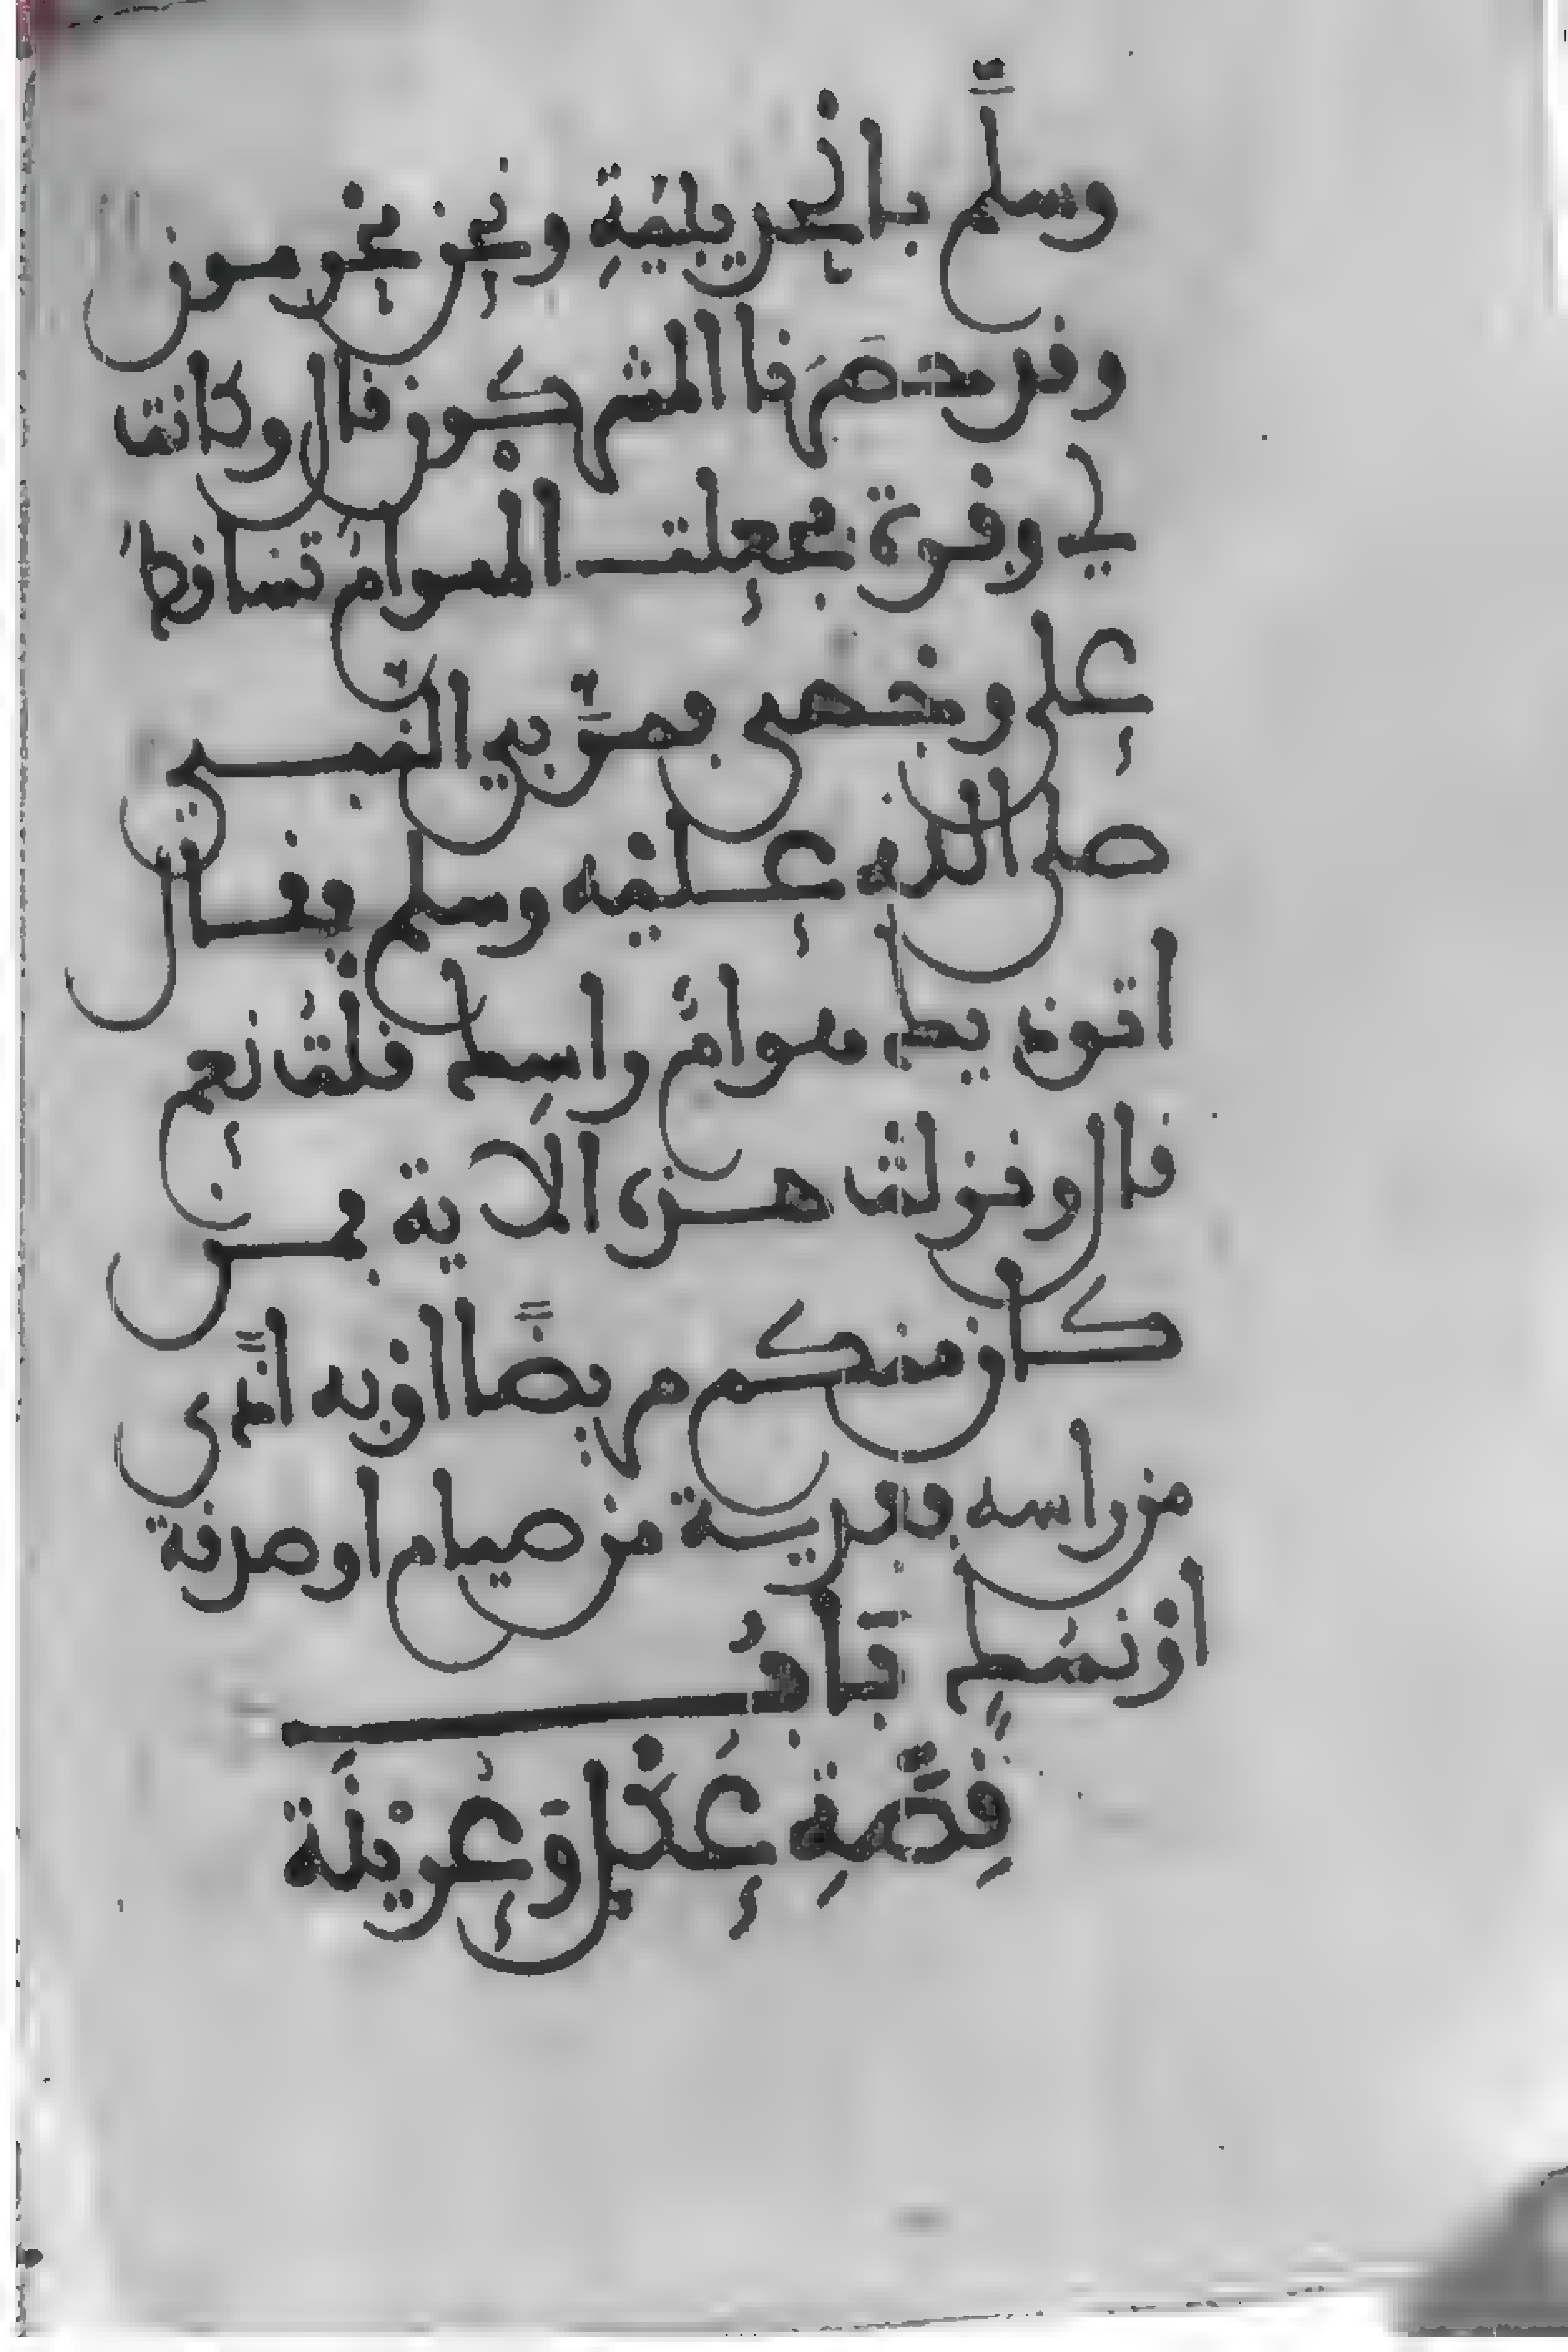 وسلَّم بالحديبيةِ ونحن محرمون
وقد حصَرَنا المشركون قال وكانت
لي وفرة فجعلت الهوامُّ تساقط
على وجهي فمرَّ بي النبي
صلى الله عليه وسلم فقال
اتوذيك هوامُّ راسِك قلتُ نعم
قال ونزلت هذه الاية فمن
كان منكم مريضًا اوْ به اذًى
من راسه ففدية من صيام او صدقة
اوْ نسُكٍ بَابُ
قِصَّةِ عُكْلٍ وَعُرَيْنَة